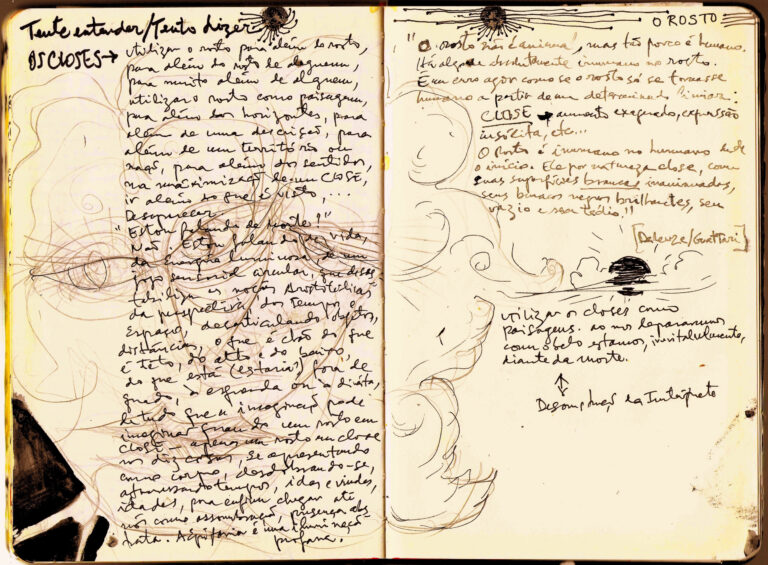 Tente entender/Tento dizer
OS CLOSES →
utilizar o rosto para além do rosto,
para além do rosto de alguém,
para muito além de alguém,
utilizar o rosto como paisagem,
para além dos horizontes, para
além de uma descrição, para
além de um território ou
nação, para além dos sentidos,
na maximização de um CLOSE,
ir além do que é visto, ...
Desaparecer.
"Estou falando de morte?"
Não. Estou falando de vida,
da energia luminosa, de um
jogo sensorial circular, que deses-
tabiliza as noções aristotélicas
da perspectiva, dos tempos e
espaços, desarticulando objetos,
distâncias, o que é chão do que
é teto, do alto e do baixo,
do que está (estaria?) fora de
quadro, a esquerda ou a direita,
de tudo que a imaginação pode
imaginar quando um rosto em
CLOSE – apenas um rosto em close
nos diz coisas, se apresentando
como corpo, desdobrando-se,
atravessando tempos, idas e vindas,
idades, para enfim chegar até
nós como assombração, presença abs-
trata. A epifania é uma iluminação
profana.
O ROSTO
"O rosto não é animal, mas tão pouco é humano.
Há algo de absolutamente inumano no rosto.
É um erro agir como se o rosto só se tornasse
humano a partir de um determinado limiar:
CLOSE → aumento exagerado, expressão
insólita, etc...
O rosto é inumano no humano desde
o início. Ele é por natureza close, com
suas superfícies brancas inanimadas,
seus buracos negros brilhantes, seu
vazio e seu tédio"!!
[Deleuze/Guattari]
utilizar os closes como
paisagens. ao nos depararmos
com o belo estamos, inevitavelmente,
diante da morte.
Desomplação da Intérprete